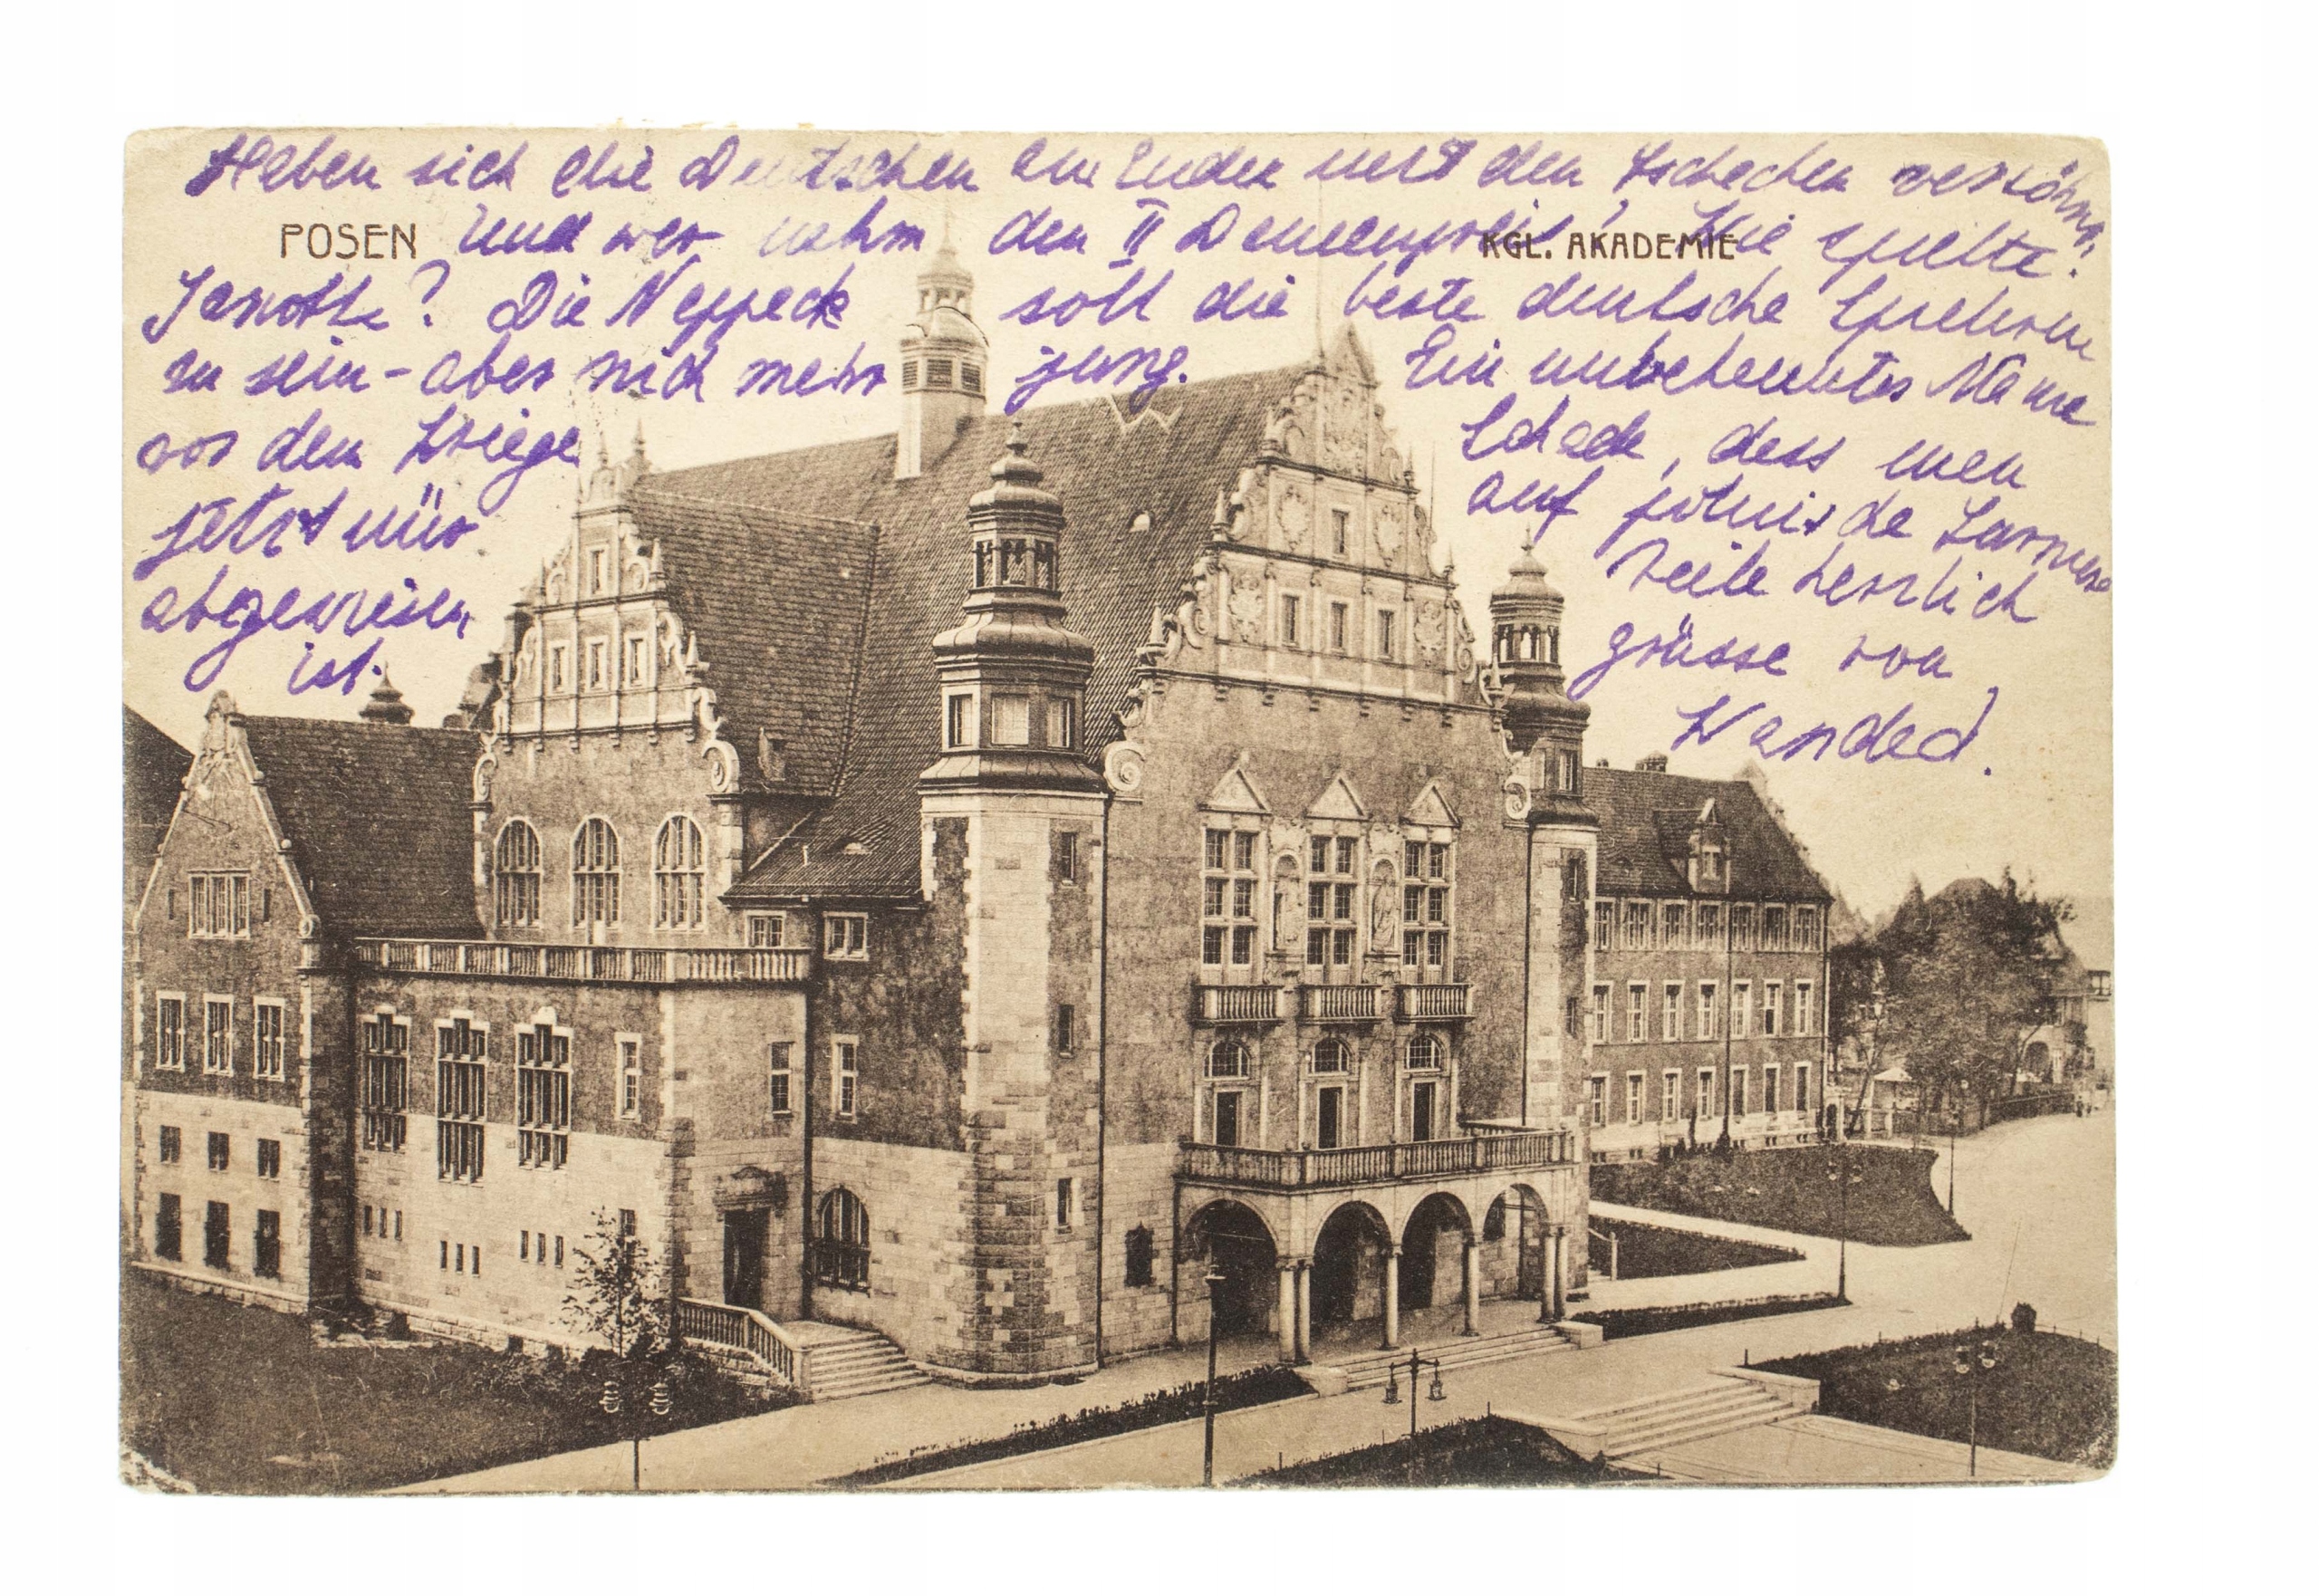 Haben sich die Deutschen am Ende mit den Tschechen versöhnt,
POSEN
und wer nahm den II Damenpreis? Wie spielte
KGL. AKADEMIE
Janotta? Die Neppach soll die beste deutsche Spielerin
zu sein - aber nich mehr jung. Ein unbekanntes Name
vor dem Kriege
Schade, dass man
jetzt
auf polnische
abgewiesen
herzlich
ist.
grüsse von
Wanda.